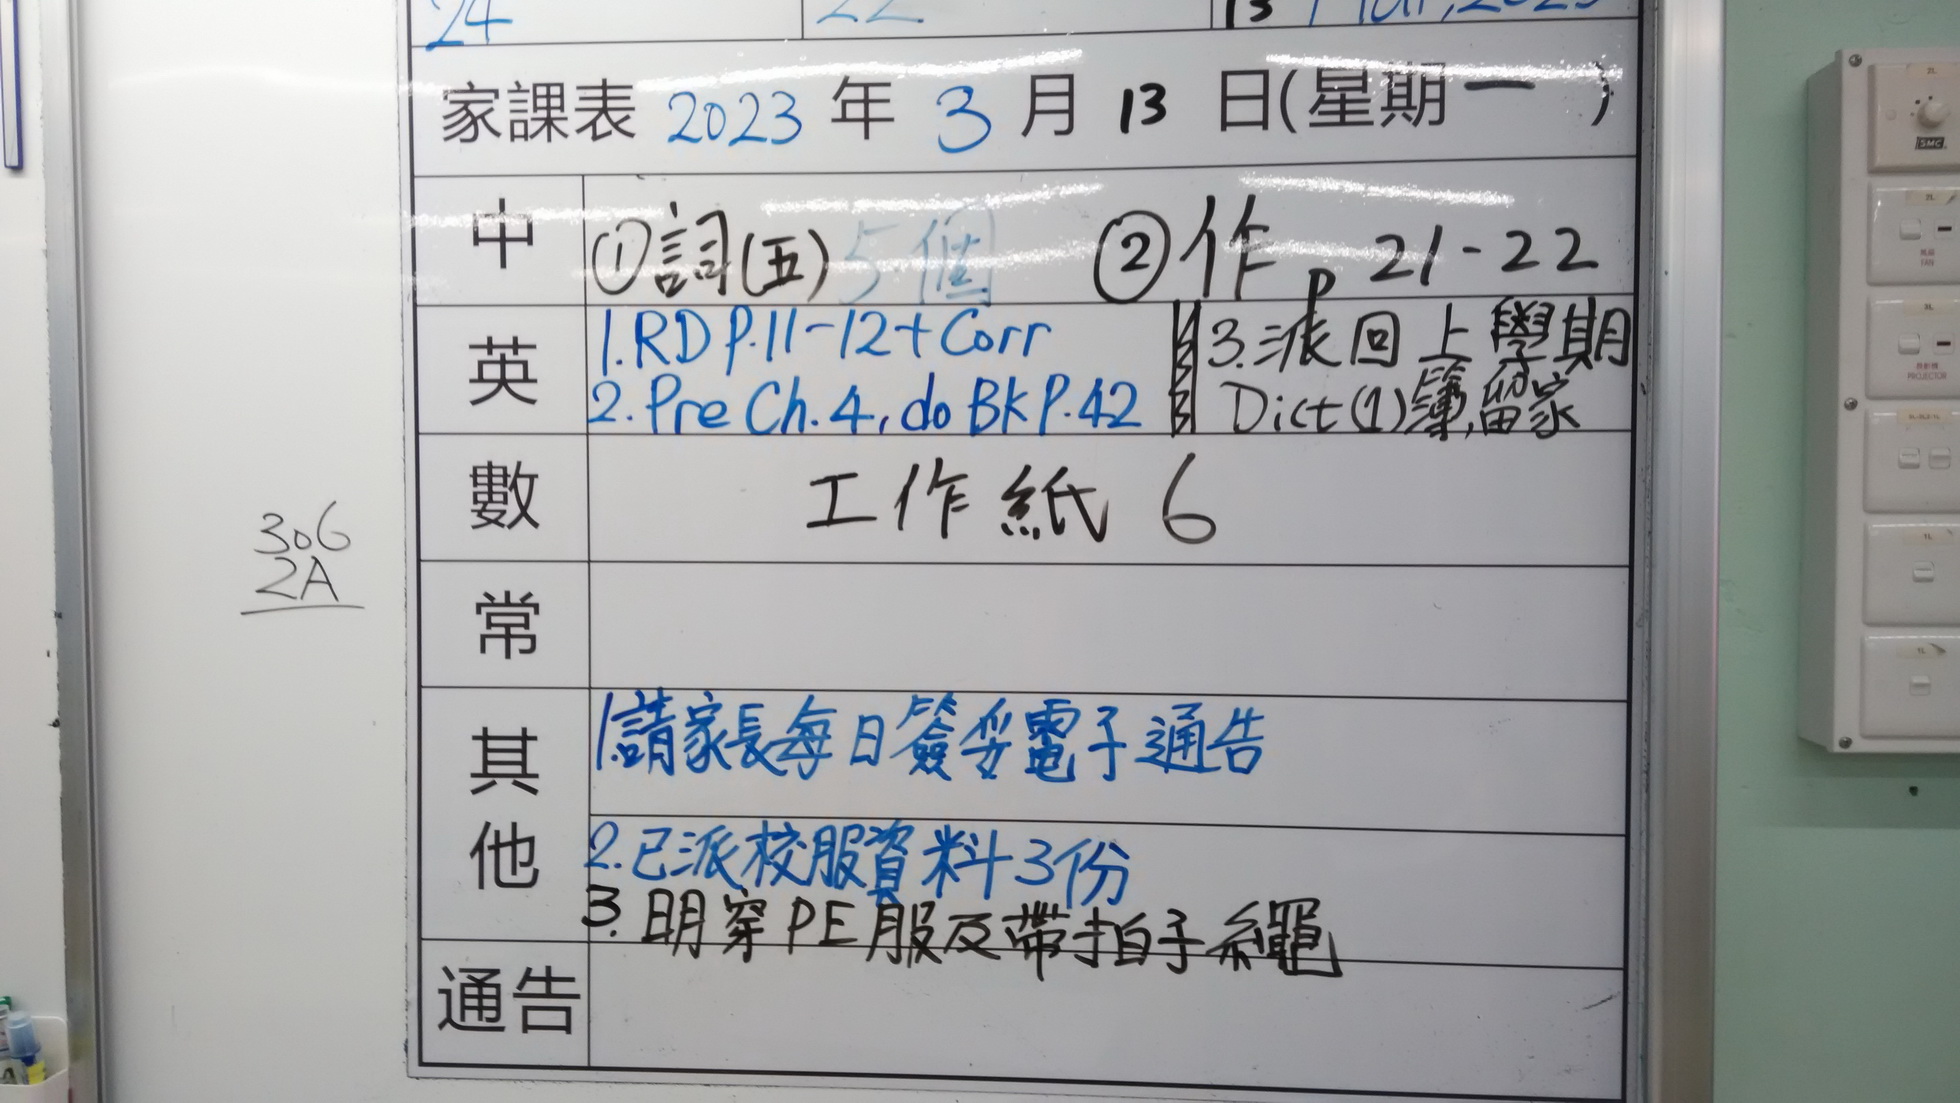 24 22 13 Mar, 2023
家課表 2023 年 3 月 13 日(星期一)
中 ①詞(五) 5個 ②作 p 21-22
英 1.RD P.11-12+Corr
2.Pre Ch.4, do BK P.42
3.派回上學期
Dict(1)簿,留家
數 工作紙 6
常
其他 1.請家長每日簽妥電子通告
2.已派校服資料3份
3.明穿PE服及帶拍子繩
通告
306
2A
SMC
FAN
PROJECTOR